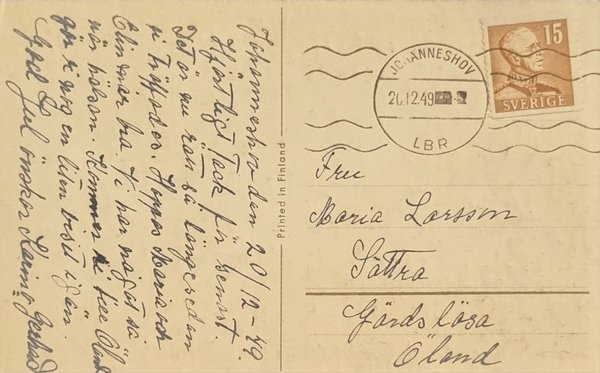 Johanneshov den 20/12-49.
Hjärtligt Tack för senast.
Det är nu rätt så länge sedan
vi träffades. Hoppas Maria och
Elin mår bra. Vi har något så
när hälsan. Kommer ni till Öland
gör i nog en liten visit igen.
God Jul önskar
Printed in Finland
JOHANNESHOV
20.12.49
LBR
15
SVERIGE
Fru
Maria Larsson
Sättra
Gärdslösa
Öland